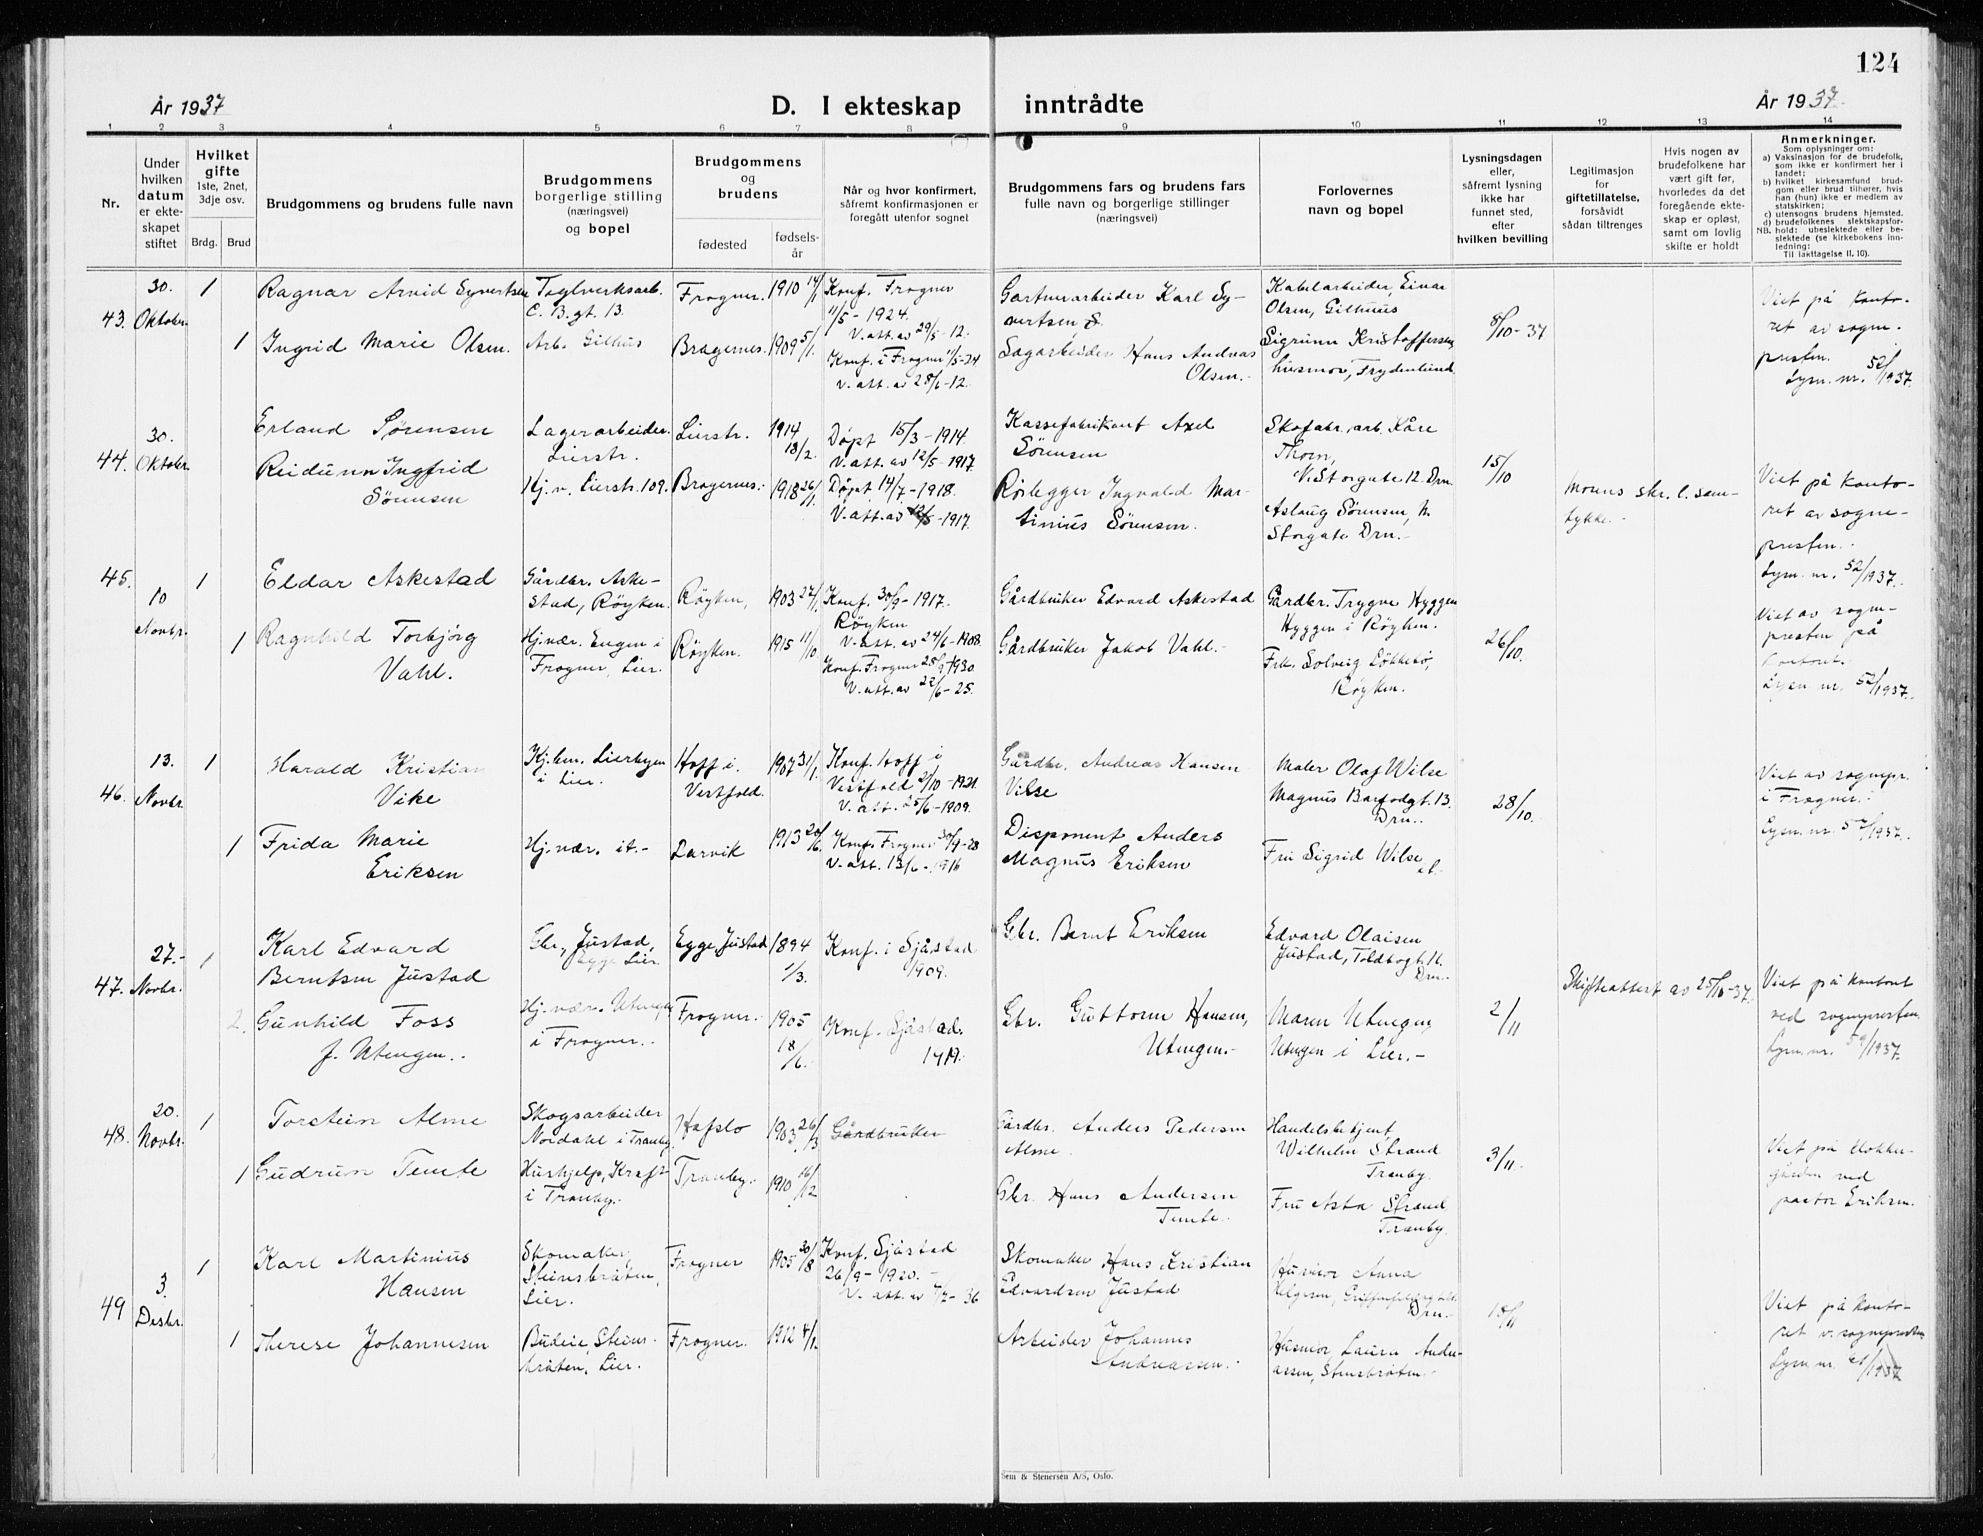 124
År 1937
D. I ekteskap inntrådte
År 1937
1 2 3 4 5 6 7 8 9 10 11 12 13 14
Nr.
Under
hvilken
datum
er ekte-
skapet
stiftet
Hvilket
gifte
1ste, 2net,
3dje osv.
Brdg. Brud
Brudgommens og brudens fulle navn
Brudgommens
borgerlige stilling
(næringsvei)
og bopel
Brudgommens
og
brudens
fødested
fødsels-
år
Når og hvor konfirmert,
såfremt konfirmasjonen er
foregått utenfor sognet
Brudgommens fars og brudens fars
fulle navn og borgerlige stillinger
(næringsvei)
Forlovernes
navn og bopel
Lysningsdagen
eller,
såfremt lysning
ikke har
funnet sted,
efter
hvilken bevilling
Legitimasjon
for
giftetillatelse,
forsåvidt
sådan tiltrenges
Hvis nogen av
brudefolkene har
vært gift før,
hvorledes da det
foregående ekte-
skap er opløst,
samt om lovlig
skifte er holdt
Anmerkninger.
Som oplysninger om:
a) Vaksinasjon for de brudefolk,
som ikke er konfirmert her i
landet;
b) hvilket kirkesamfund brud-
gom eller brud tilhører, hvis
han (hun) ikke er medlem av
statskirken;
c) utensogns brudens hjemsted.
d) brudefolkenes slektskapsfor-
NB. hold: ubeslektede eller be-
slektede (se kirkebokens inn-
ledning:
Til iakttagelse II. 10).
43.
30.
Oktober.
1
Ragnar Arvid Syvertsen
Teglverksarb.
C. B. gt. 13.
Frogner.
1910 14/1
Konf. Frogner
11/5 - 1924.
V. att. av 29/5 - 12.
Gartnerarbeider Karl Sy-
vertsen
Kabelarbeider, Einar
Olsen, Gilhus
8/10 - 37
Viet på konto-
ret av sogne-
presten.
Lysn. nr. 52/1937.
1
Ingrid Marie Olsen.
Arb. Gilhus
Bragernes.
1909 5/1.
Konf. i Frogner 11/5-24
V. att. av 28/6 - 12.
Sagarbeider Hans Andreas
Olsen.-
Sigrunn Kristoffersen,
husmor, Frydenlund.
44.
30.
Oktober.
Erland Sørensen
Lagerarbeider.
Lierstr.
Lierstr.
1914
18/2.
Døpt 15/3 - 1914.
V. att. av 12/5 - 1917
Kassefabrikant Axel
Sørensen
Skofabr. arb. Kåre
Thorn,
N. Storgate 12. Drm.
15/10
Morens skr. l. sam-
tykke.-
Viet på konto-
ret av sogne-
presten.
Lysn. nr. 52/1937.
Reidunn Ingfrid
Sørensen
Hj. v. Lierstr. 109.
Bragernes.
1918 26/1.
Døpt 14/7 - 1918.
V. att. av 12/5 - 1917.
Rørlegger Ingvald Mar-
tinius Sørensen.
Aslaug Sørensen, N.
Storgate Drm.-
45.
10
Novbr.
1
Eldar Askestad
Gårdbr. Aske-
stad, Røyken.
Røyken,
1903 27/1.
Konf. 30/9 - 1917.
Røyken
V. att. av 24/6 - 1908.
Gårdbruker Edvard Askestad
Gårdbr. Trygve Hyggen
Hyggen i Røyken.
26/10.
Viet av sogne-
presten på
kontoret.
Lysn nr. 52/1937.
1
Ragnhild Torbjørg
Vahl.
Hj. vær. Eugen i
Frogner, Lier.
Røyken.
1915 11/10
Konf. Frogner 28/9 1930
V. att. av 22/6 - 25.
Gårdbruker Jakob Vahl.-
Frk. Solveig Løkkebø,
Røyken.
46.
13.
Novbr.
1
Harald Kristian
Vike
Kj.bm. Lierbyen
i Lier.
Hoff i.
Vestfold.
1907 31/1.
Konf. Hoff i
Vestfold 2/10 - 1921.
V. att. 25/6 - 1909.
Gårdbr. Andreas Hansen
Vilse
Maler Olaf Wilse
Magnus Barfodgt. 13.
Drm..
28/10.
Viet av sognepr.
i Frogner.
Lysn. nr. 52/1937.
1
Frida Marie
Eriksen
Hj. vær. st.-
Larvik
1913 20/6.
Konf. Frogner 30/9 - 28
V. att. 13/6 - 1916
Disponent Anders
Magnus Eriksen
Fru Sigrid Wilse
47.
27.-
Novbr.
1
Karl Edvard
Berntsen Justad
Gbr., Justad,
Egge, Lier.
Egge, Justad
1894
1/3.
Konf. i Sjåstad
1909.
Gbr. Bernt Eriksen
Edvard Olaisen
Justad, Toldbogt. 16.
Drm.-
2/11
Skifteattest av 25/10-37.
Viet på kontoret
ved sognepresten.
Lysn. nr. 59/1937.
2.
Gunhild Foss
f. Utengen..
Hj. vær. Utengen
i Frogner.-
Frogner.
1905
18/6.
Konf. Sjåstad.
1919.
Gbr. Guttorm Hansen,
Utengen.-
Maren Utengen,
Utengen i Lier.-
48.
20.
Novbr.
1
Torstein Alme
Skogsarbeider
Nordahl i Tranby
Hafslo
1903 26/3
Gårdbruker
Gårdbr. Anders Pedersen
Alme.
Handelsbetjent
Wilhelm Strand
Tranby.
3/11.
Viet på klokker-
gården ved
pastor Eriksen.
1
Gudrun Temte
Hushjelp, Kraft
i Tranby.
Tranby.
1910 14/12
Gbr. Hans Andersen
Temte.
Fru Asta Strand
Tranby.
49
3.
Desbr.
1
Karl Martinius
Hansen
Skomaker,
Steinsbråten,
Lier.
Frogner
1905 30/8
Konf. Sjåstad
26/9 - 1920.-
V. att. av 7/7 - 36
Skomaker Hans Kristian
Edvardsen Justad
Husmor Anna
Helgesen,
Drm.-
Viet på konto-
ret v. sognepresten
Lysn. nr. 61/1937
1
Therese Johannesen
Budeie, Steins-
bråten, Lier.
Frogner.
1912 4/1.
Arbeider Johannes
Andreassen.
Husmor, Laura Andre-
assen, Stensbråten.-
Sem & Stenersen A/S, Oslo.